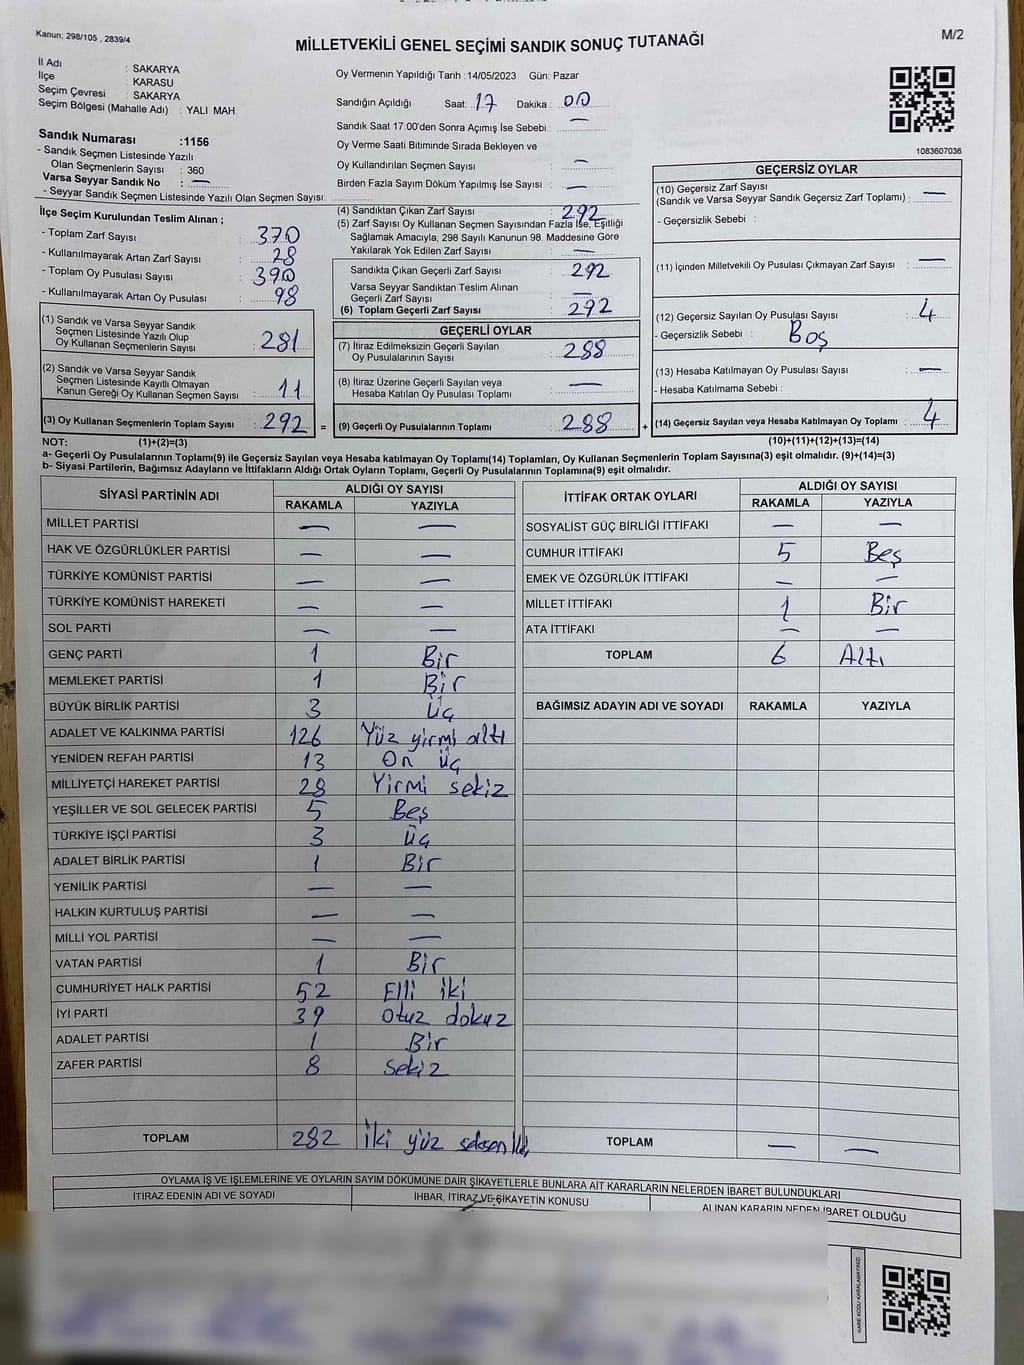 Kanun: 298/105 , 2839/4
MİLLETVEKİLİ GENEL SEÇİMİ SANDIK SONUÇ TUTANAĞI
M/2
İl Adı : SAKARYA
İlçe : KARASU
Seçim Çevresi : SAKARYA
Seçim Bölgesi (Mahalle Adı) : YALI MAH.
Oy Vermenin Yapıldığı Tarih :14/05/2023 Gün: Pazar
Sandığın Açıldığı Saat: 17 Dakika : 00
Sandık Saat 17:00'den Sonra Açımış İse Sebebi : —
Oy Verme Saati Bitiminde Sırada Bekleyen ve
Oy Kullandırılan Seçmen Sayısı : —
Birden Fazla Sayım Döküm Yapılmış İse Sayısı : —
Sandık Numarası :1156
- Sandık Seçmen Listesinde Yazılı
Olan Seçmenlerin Sayısı : 360
Varsa Seyyar Sandık No : —
- Seyyar Sandık Seçmen Listesinde Yazılı Olan Seçmen Sayısı:
1083607036
İlçe Seçim Kurulundan Teslim Alınan ;
- Toplam Zarf Sayısı : 370
- Kullanılmayarak Artan Zarf Sayısı : 28
- Toplam Oy Pusulası Sayısı : 390
- Kullanılmayarak Artan Oy Pusulası : 98
(1) Sandık ve Varsa Seyyar Sandık
Seçmen Listesinde Yazılı Olup
Oy Kullanan Seçmenlerin Sayısı : 281
(2) Sandık ve Varsa Seyyar Sandık
Seçmen Listesinde Kayıtlı Olmayan
Kanun Gereği Oy Kullanan Seçmen Sayısı : 11
(3) Oy Kullanan Seçmenlerin Toplam Sayısı : 292 =
(4) Sandıktan Çıkan Zarf Sayısı : 292
(5) Zarf Sayısı Oy Kullanan Seçmen Sayısından Fazla İse, Eşitliği
Sağlamak Amacıyla; 298 Sayılı Kanunun 98. Maddesine Göre
Yakılarak Yok Edilen Zarf Sayısı : —
Sandıkta Çıkan Geçerli Zarf Sayısı : 292
Varsa Seyyar Sandıktan Teslim Alınan
Geçerli Zarf Sayısı : —
(6) Toplam Geçerli Zarf Sayısı : 292
GEÇERLİ OYLAR
(7) İtiraz Edilmeksizin Geçerli Sayılan
Oy Pusulalarının Sayısı : 288
(8) İtiraz Üzerine Geçerli Sayılan veya
Hesaba Katılan Oy Pusulası Toplamı : —
(9) Geçerli Oy Pusulalarının Toplamı : 288 +
GEÇERSİZ OYLAR
(10) Geçersiz Zarf Sayısı
(Sandık ve Varsa Seyyar Sandık Geçersiz Zarf Toplamı) : —
- Geçersizlik Sebebi :
(11) İçinden Milletvekili Oy Pusulası Çıkmayan Zarf Sayısı : —
(12) Geçersiz Sayılan Oy Pusulası Sayısı : 4
- Geçersizlik Sebebi : Boş
(13) Hesaba Katılmayan Oy Pusulası Sayısı : —
- Hesaba Katılmama Sebebi :
(14) Geçersiz Sayılan veya Hesaba Katılmayan Oy Toplamı : 4
NOT: (1)+(2)=(3)
(10)+(11)+(12)+(13)=(14)
a- Geçerli Oy Pusulalarının Toplamı(9) ile Geçersiz Sayılan veya Hesaba katılmayan Oy Toplamı(14) Toplamları, Oy Kullanan Seçmenlerin Toplam Sayısına(3) eşit olmalıdır. (9)+(14)=(3)
b- Siyasi Partilerin, Bağımsız Adayların ve İttifakların Aldığı Ortak Oyların Toplamı, Geçerli Oy Pusulalarının Toplamına(9) eşit olmalıdır.
SİYASİ PARTİNİN ADI ALDIĞI OY SAYISI
RAKAMLA YAZIYLA
MİLLET PARTİSİ — —
HAK VE ÖZGÜRLÜKLER PARTİSİ — —
TÜRKİYE KOMÜNİST PARTİSİ — —
TÜRKİYE KOMÜNİST HAREKETİ — —
SOL PARTİ — —
GENÇ PARTİ 1 Bir
MEMLEKET PARTİSİ 1 Bir
BÜYÜK BİRLİK PARTİSİ 3 Üç
ADALET VE KALKINMA PARTİSİ 126 Yüz yirmi altı
YENİDEN REFAH PARTİSİ 13 On üç
MİLLİYETÇİ HAREKET PARTİSİ 28 Yirmi sekiz
YEŞİLLER VE SOL GELECEK PARTİSİ 5 Beş
TÜRKİYE İŞÇİ PARTİSİ 3 Üç
ADALET BİRLİK PARTİSİ 1 Bir
YENİLİK PARTİSİ — —
HALKIN KURTULUŞ PARTİSİ — —
MİLLİ YOL PARTİSİ — —
VATAN PARTİSİ 1 Bir
CUMHURİYET HALK PARTİSİ 52 Elli iki
İYİ PARTİ 39 Otuz dokuz
ADALET PARTİSİ 1 Bir
ZAFER PARTİSİ 8 Sekiz
TOPLAM 282 İki yüz seksen iki
İTTİFAK ORTAK OYLARI ALDIĞI OY SAYISI
RAKAMLA YAZIYLA
SOSYALİST GÜÇ BİRLİĞİ İTTİFAKI — —
CUMHUR İTTİFAKI 5 Beş
EMEK VE ÖZGÜRLÜK İTTİFAKI — —
MİLLET İTTİFAKI 1 Bir
ATA İTTİFAKI — —
TOPLAM 6 Altı
BAĞIMSIZ ADAYIN ADI VE SOYADI RAKAMLA YAZIYLA
TOPLAM — —
OYLAMA İŞ VE İŞLEMLERİNE VE OYLARIN SAYIM DÖKÜMÜNE DAİR ŞİKAYETLERLE BUNLARA AİT KARARLARIN NELERDEN İBARET BULUNDUKLARI
İTİRAZ EDENİN ADI VE SOYADI İHBAR, İTİRAZ VE ŞİKAYETİN KONUSU ALINAN KARARIN NEDEN İBARET OLDUĞU
KARE KODU KARALAMAYINIZ!